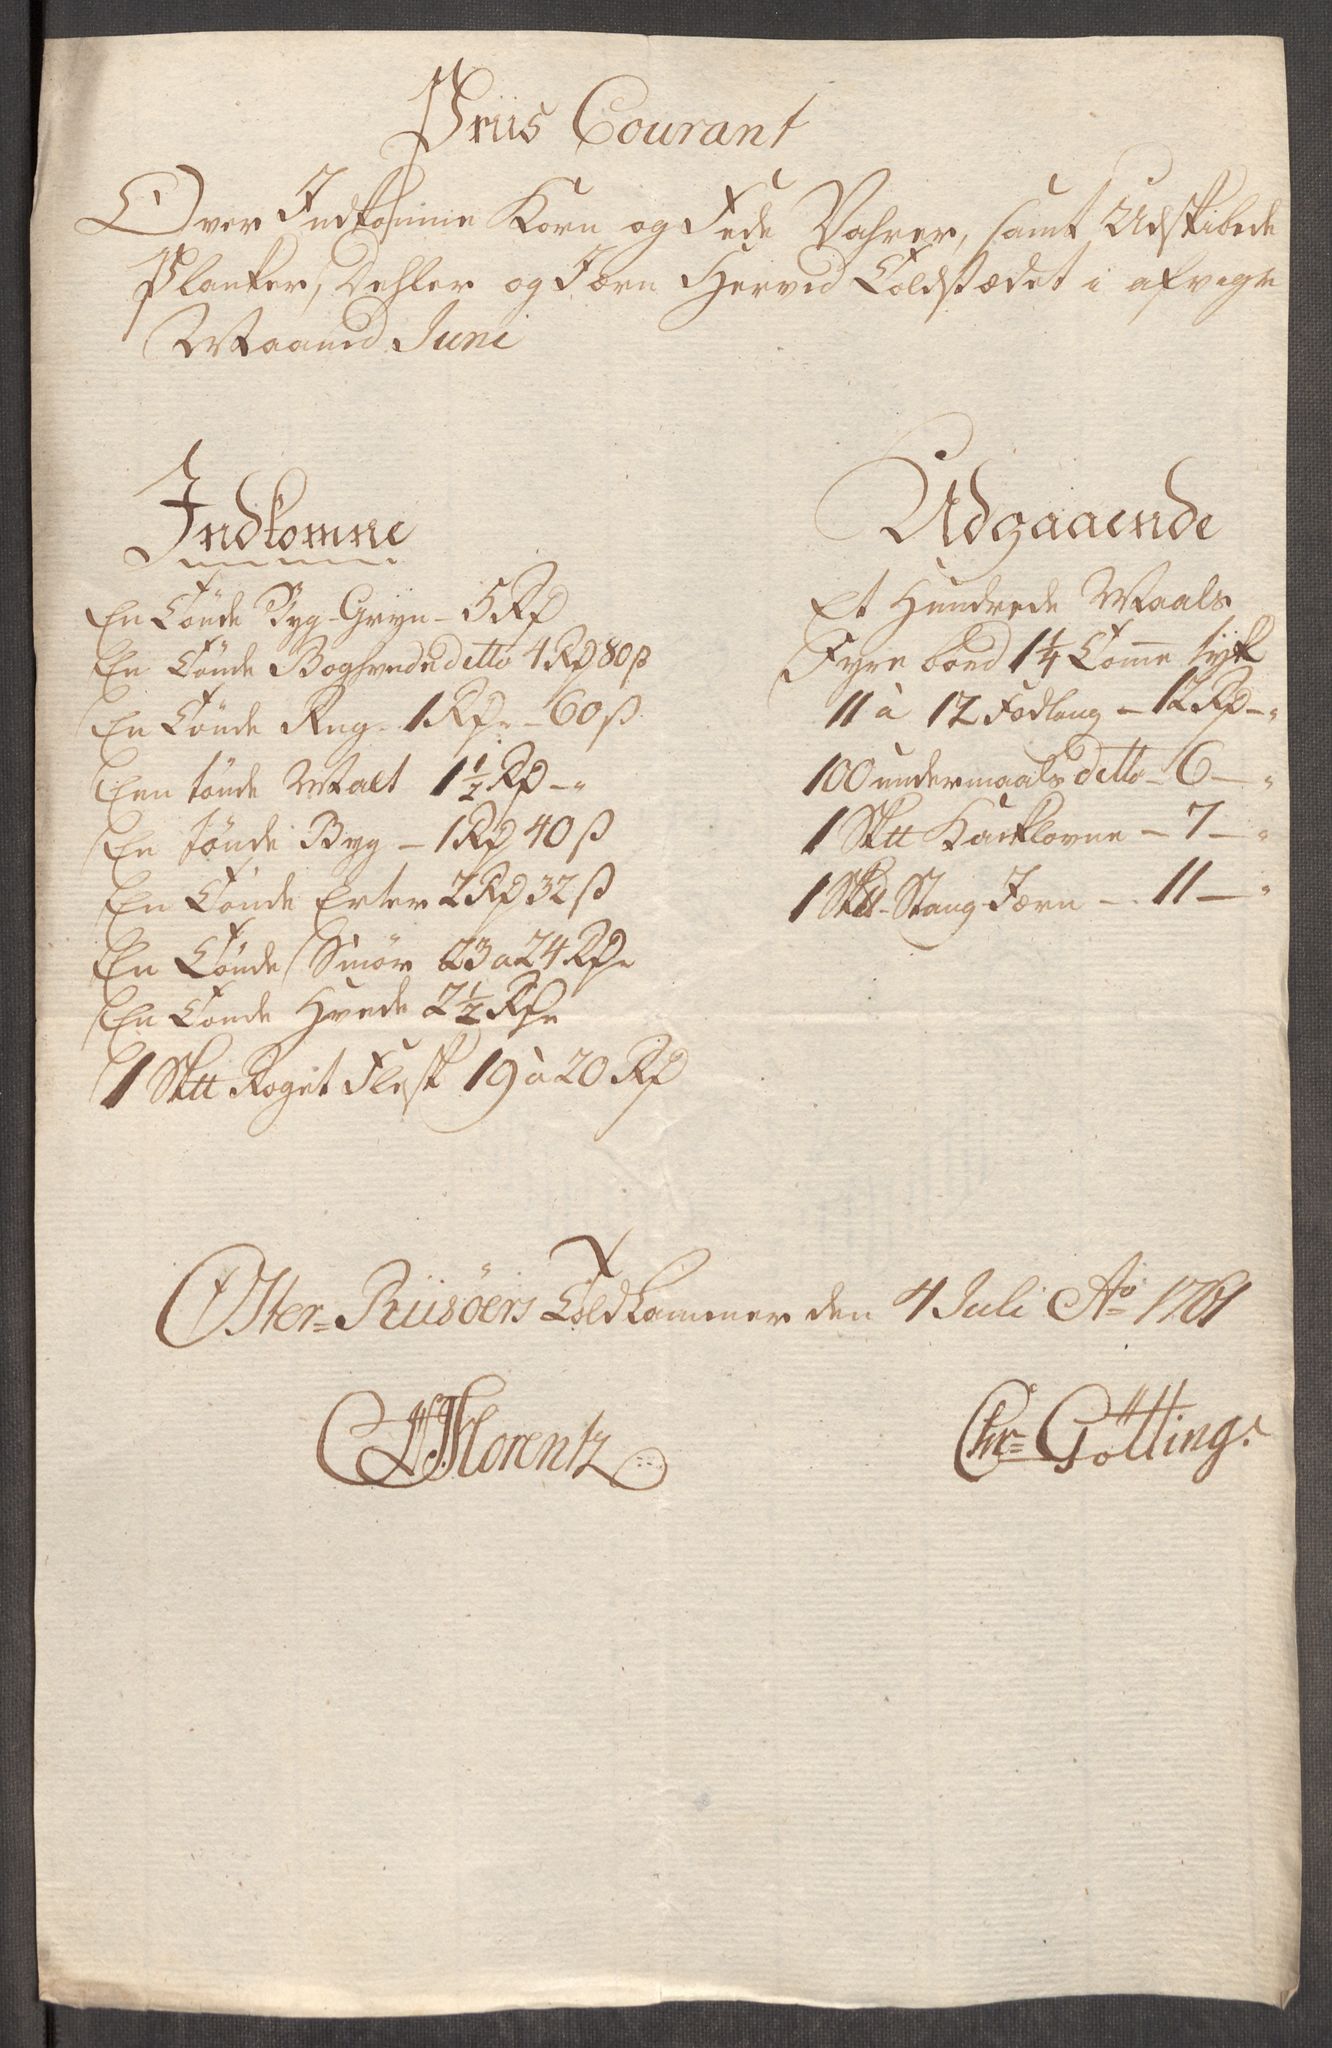 Priis Courant
Over Indkomne Korn og Fede Vahrer, samt Udskibede
Planker, Dehler og Jærn Herved Toldstædet i afvigte
Maaned Juni
Indkomne
En Tönde Byg-Gryn - 5 Rd
En Tönde Boghvede ditto 4 Rd 80 ß
En Tönde Rug - 1 Rd - 60 ß
Een tönde Malt 1 1/2 Rd - "
En tönde Byg - 1 Rd 40 ß
En Tönde Erter 2 Rd 32 ß
En Tönde Smör 23 a 24 Rd
En Tönde Hvede 2 1/2 Rd
1 Sktt Röget Flesk 19 à 20 Rd
Udgaaende
Et Hundrede Maals
Fyre bord 1 1/4 Tomme tyk
11 à 12 Fod lang - 12 Rd - "
100 undermaals ditto - 6 - "
1 Sktt Kacklovne - 7 - "
1 Sktt Stang Jærn - 11 - "
Öster-Riisöers Toldkammer den 4 Juli Ao 1761
Florentz
Chr= Götting.